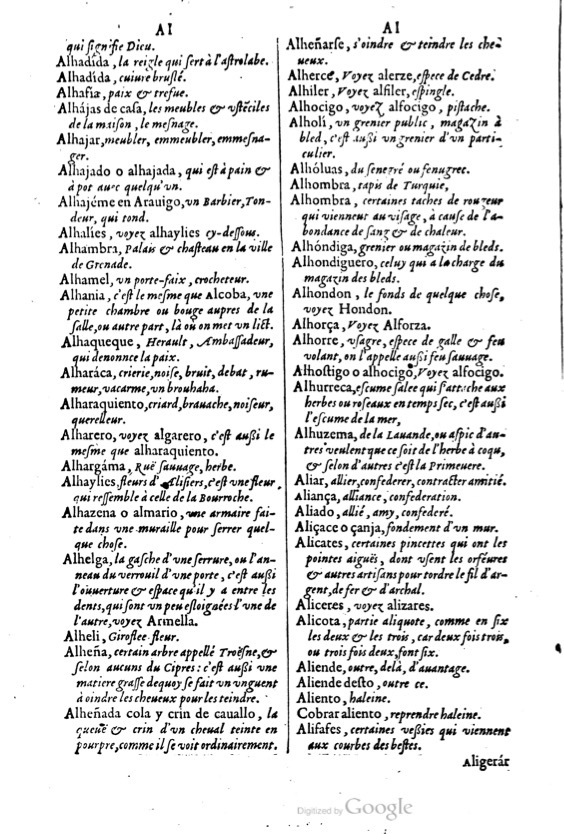 AI
qui signifie Dieu.
Alhadída, la reigle qui sert à l'astrolabe.
Alhadída, cuiure bruslé.
Alhafia, paix & trefue.
Alhájas de casa, les meubles & vstẽciles
de la maison, le mesnage.
Alhajar, meubler, emmeubler, emmesna-
ger.
Alhajado o alhajada, qui est à pain &
à pot auec quelqu'vn.
Alhajéme en Arauigo, vn Barbier, Ton-
deur, qui tond.
Alhalíes, voyez alhaylies cy-dessous.
Alhambra, Palais & chasteau en la ville
de Grenade.
Alhamel, vn porte-faix, crocheteur.
Alhania, c'est le mesme que Alcoba, vne
petite chambre ou bouge aupres de la
salle, ou autre part, là où on met vn lict.
Alhaqueque, Herault, Ambassadeur,
qui denonnce la paix.
Alharáca, crierie, noise, bruit, debat, ru-
meur, vacarme, vn brouhaha.
Alharaquiento, criard, brauache, noiseur,
querelleur.
Alharero, voyez algarero, c'est aussi le
mesme que alharaquiento.
Alhargáma, Ruë sauuage, herbe.
Alhaylíes, fleurs d'Alisiers, c'est vne fleur
qui ressemble à celle de la Bourroche.
Alhazena o almario, vne armaire fai-
te dans vne muraille pour serrer quel-
que chose.
Alhelga, la gasche d'vne serrure, ou l'an-
neau du verrouil d'vne porte, c'est aussi
l'ouuerture & espace qu'il y a entre les
dents, qui sont vn peu esloignées l'vne de
l'autre, voyez Armella.
Alheli, Giroflee fleur.
Alheña, certain arbre appellé Troësne, &
selon aucuns du Cipres: c'est aussi vne
matiere grasse dequoy se fait vn vnguent
à oindre les cheueux pour les teindre.
Alheñada cola y crin de cauallo, la
queuë & crin d'vn cheual teinte en
pourpre, comme il se voit ordinairement.
AI
Alheñarse, s'oindre & teindre les che-
ueux.
Alherce, Voyez alerze, espece de Cedre.
Alhiler, Voyez alfiler, espingle.
Alhocigo, voyez alfocigo, pistache.
Alholi, vn grenier public, magazin à
bled, c'est aussi vn grenier d'vn parti-
culier.
Alhóluas, du senegré ou fenugrec.
Alhombra, tapis de Turquie,
Alhombra, certaines taches de rougeur
qui viennent au visage, à cause de l'a-
bondance de sang & de chaleur.
Alhóndiga, grenier ou magazin de bleds.
Alhondiguero, celuy qui a la charge du
magazin des bleds.
Alhondon, le fonds de quelque chose,
voyez Hondon.
Alhorça, Voyez Alforza.
Alhorre, vsagre, espece de galle & feu
volant, on l'appelle aussi feu sauuage.
Alhostigo o alhocigo, Voyez alfocigo.
Alhurreca, escume salee qui s'attache aux
herbes ou roseaux en temps sec, c'est aussi
l'escume de la mer,
Alhuzema, de la Lauande, ou aspic d'au-
tres veulent que ce soit de l'herbe à coqu,
& selon d'autres c'est la Primeuere.
Aliar, allier, confederer, contracter amitié.
Aliança, alliance, confederation.
Aliado, allié, amy, confederé.
Aliçace o çanja, fondement d'vn mur.
Alicates, certaines pincettes qui ont les
pointes aiguës, dont vsent les orféures
& autres artisans pour tordre le fil d'ar-
gent, de fer & d'archal.
Aliceres, voyez alizares.
Alicota, partie aliquote, comme en six
les deux & les trois, car deux fois trois,
ou trois fois deux, font six.
Aliende, outre, delà, d'auantage.
Aliende desto, outre ce.
Aliento, haleine.
Cobrar aliento, reprendre haleine.
Alifafes, certaines vessies qui viennent
aux courbes des bestes.
Aligerár
Digitized by Google